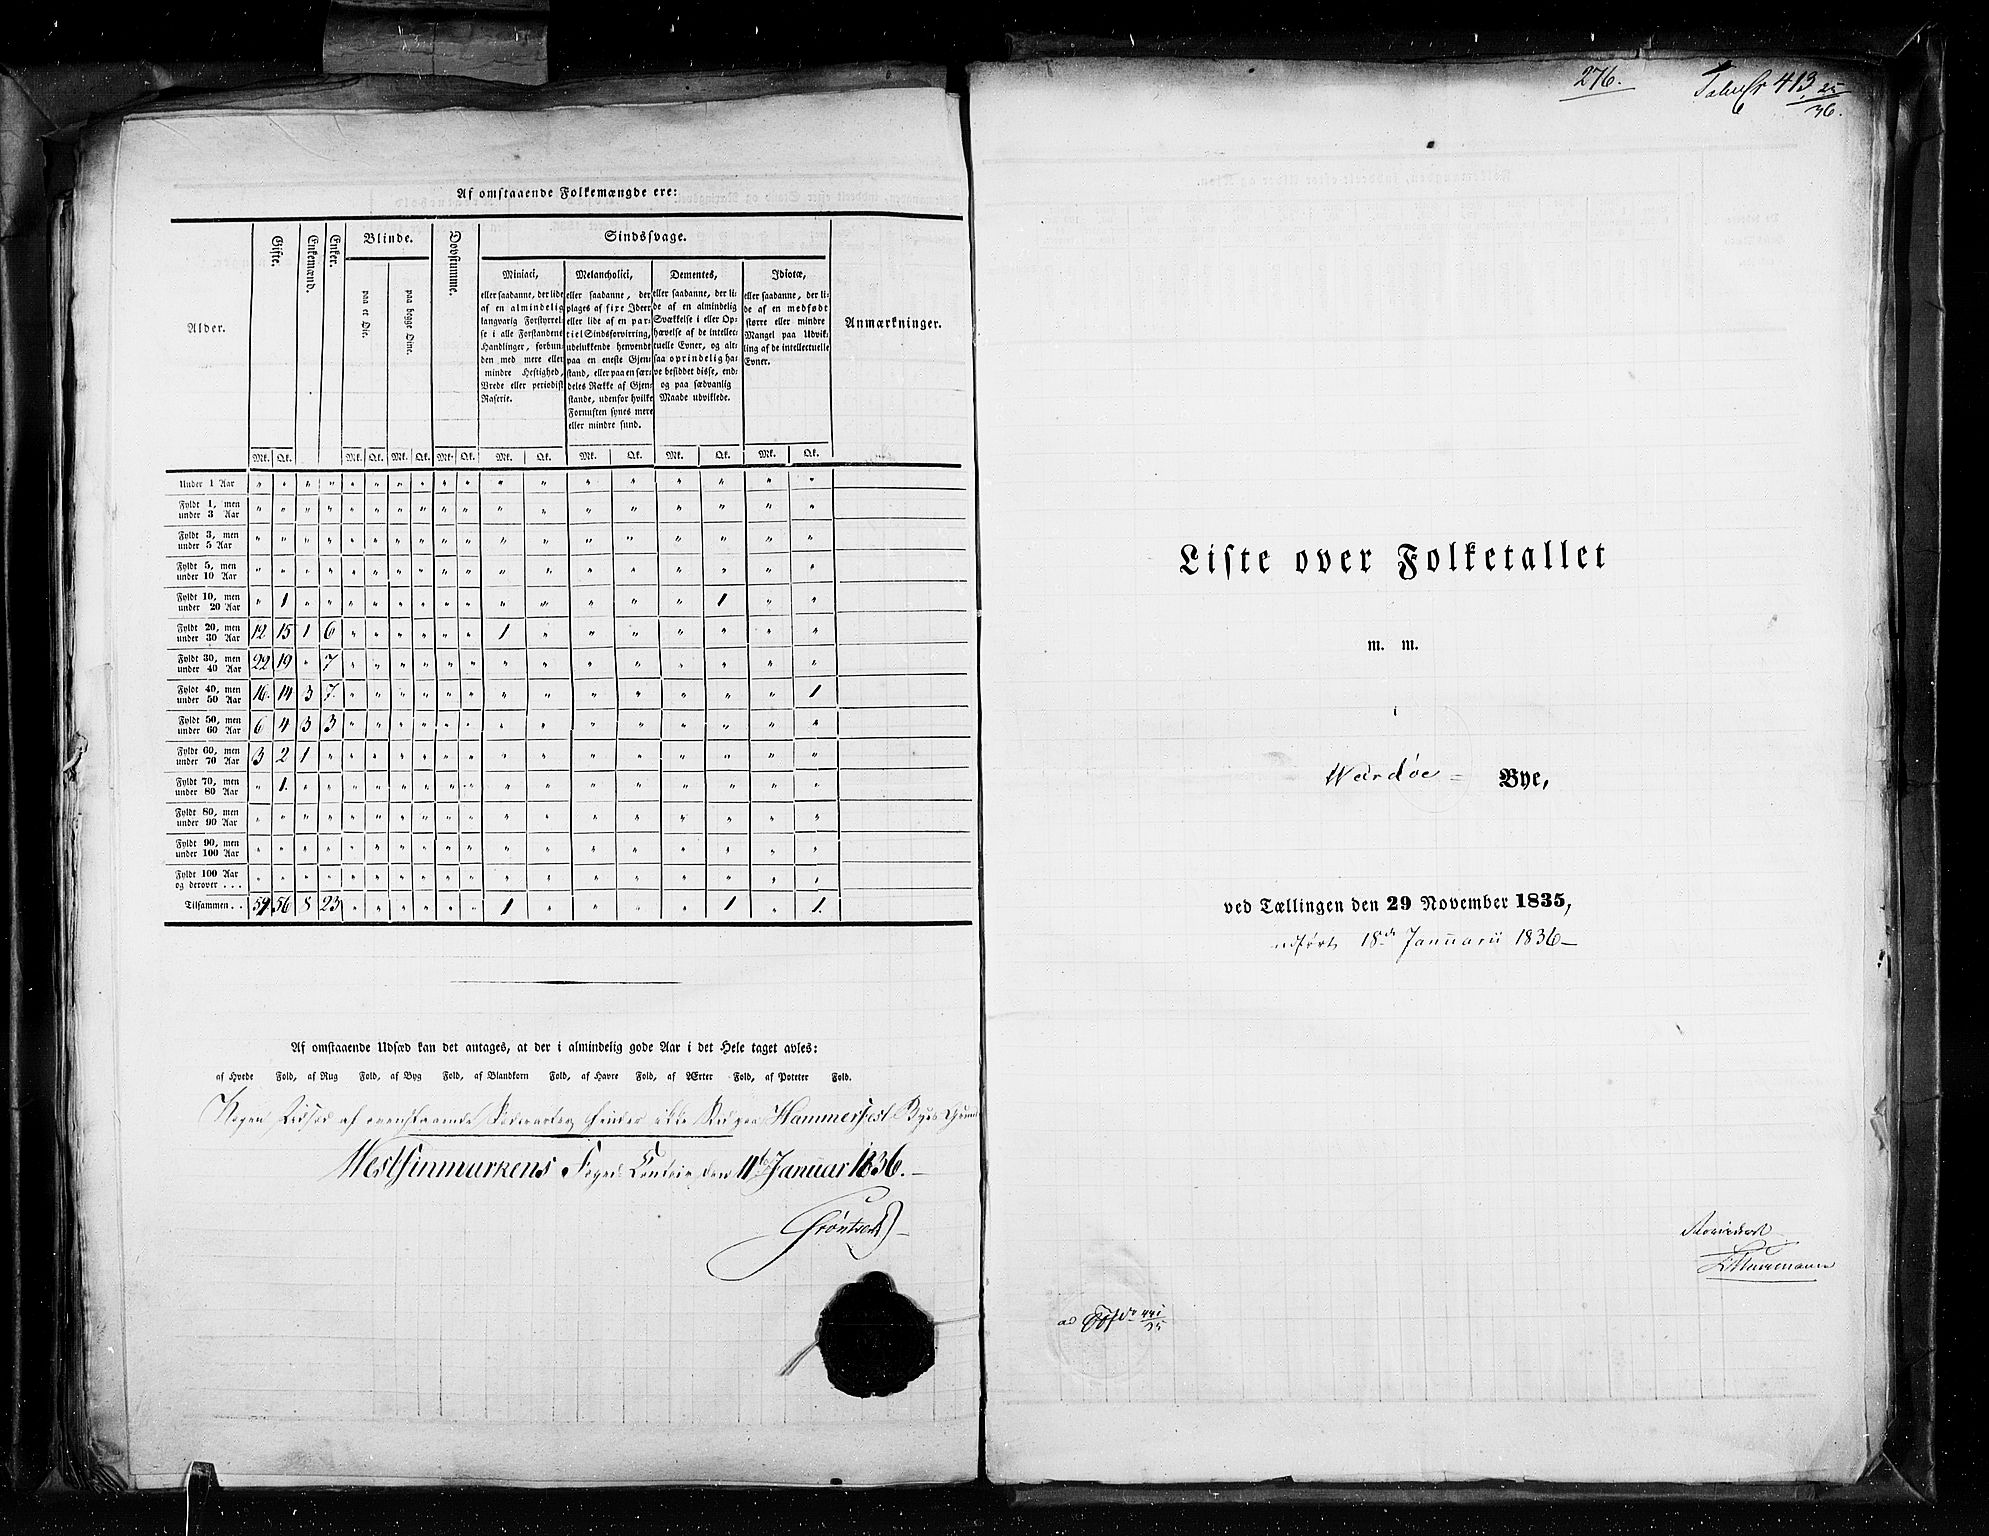 Af omstaaende Folkemængde ere:
Alder. Gifte. Enkemænd. Enker. Blinde. Døvstumme. Sindssvage. Anmærkninger.
paa et Øie. paa begge Øine.
Miniaci,
eller saadanne, der lide
af en almindelig
langvarig Forstyrrel-
se i alle Forstandens
Handlinger, forbun-
den med mere eller
mindre Heftighed,
Vrede eller periodisk
Raserie.
Melancholici,
eller saadanne, der
plages af fixe Ideer
eller lide af en par-
tiel Sindsforvirring,
udelukkende henvendt
paa en eneste Gjen-
stand, eller paa en sær-
deles Række af Gjen-
stande, udenfor hvilke
Fornuften synes mere
eller mindre sund.
Dementes,
eller saadanne, der li-
de af en almindelig
Svækkelse i eller Op-
hævelse af de intellec-
tuelle Evner, og alt-
saa oprindelig ha-
ve besiddet disse, end-
og paa sædvanlig
Maade udviklede.
Idiotæ,
eller saadanne, der li-
de af en medfødt
større eller mindre
Mangel paa Udvik-
ling af de intellectuelle
Evner.
Mk. Qk. Mk. Qk. Mk. Qk. Mk. Qk. Mk. Qk. Mk. Qk. Mk. Qk. Mk. Qk.
Under 1 Aar " " " " " " " " " " " " " " " " " "
Fyldt 1, men
under 3 Aar " " " " " " " " " " " " " " " " " "
Fyldt 3, men
under 5 Aar " " " " " " " " " " " " " " " " " "
Fyldt 5, men
under 10 Aar " " " " " " " " " " " " " " " " " "
Fyldt 10, men
under 20 Aar " 1 " " " " " " " " " " " " " 1 " "
Fyldt 20, men
under 30 Aar 12 15 1 6 " " " " " " 1 " " " " " " "
Fyldt 30, men
under 40 Aar 22 19 " 7 " " " " " " " " " " " " " "
Fyldt 40, men
under 50 Aar 16 14 3 7 " " " " " " " " " " " " " 1
Fyldt 50, men
under 60 Aar 6 4 3 3 " " " " " " " " " " " " " "
Fyldt 60, men
under 70 Aar 3 2 1 " " " " " " " " " " " " " " "
Fyldt 70, men
under 80 Aar " 1 " " " " " " " " " " " " " " " "
Fyldt 80, men
under 90 Aar " " " " " " " " " " " " " " " " " "
Fyldt 90, men
under 100 Aar " " " " " " " " " " " " " " " " " "
Fyldt 100 Aar
og derover . . . " " " " " " " " " " " " " " " " " "
Tilsammen . . 59 56 8 23 " " " " " " 1 " " " " 1 " 1.
Af omstaaende Udsæd kan det antages, at der i almindelig gode Aar i det Hele taget avles:
af Hvede Fold, af Rug Fold, af Byg Fold, af Blandkorn Fold, af Havre Fold, af Ærter Fold, af Poteter Fold.
Nogen Udsæd af ovenstaaende finder ikke Sted paa Hammerfest Byes Grund
Westfinmarkens Fogd Contoir den 11te Januar 1836.
276.
413
36.
Liste over Folketallet
m. m.
i
Wardøe Bye,
ved Tællingen den 29 November 1835,
udført 18de Januarii 1836
Revideret
ad